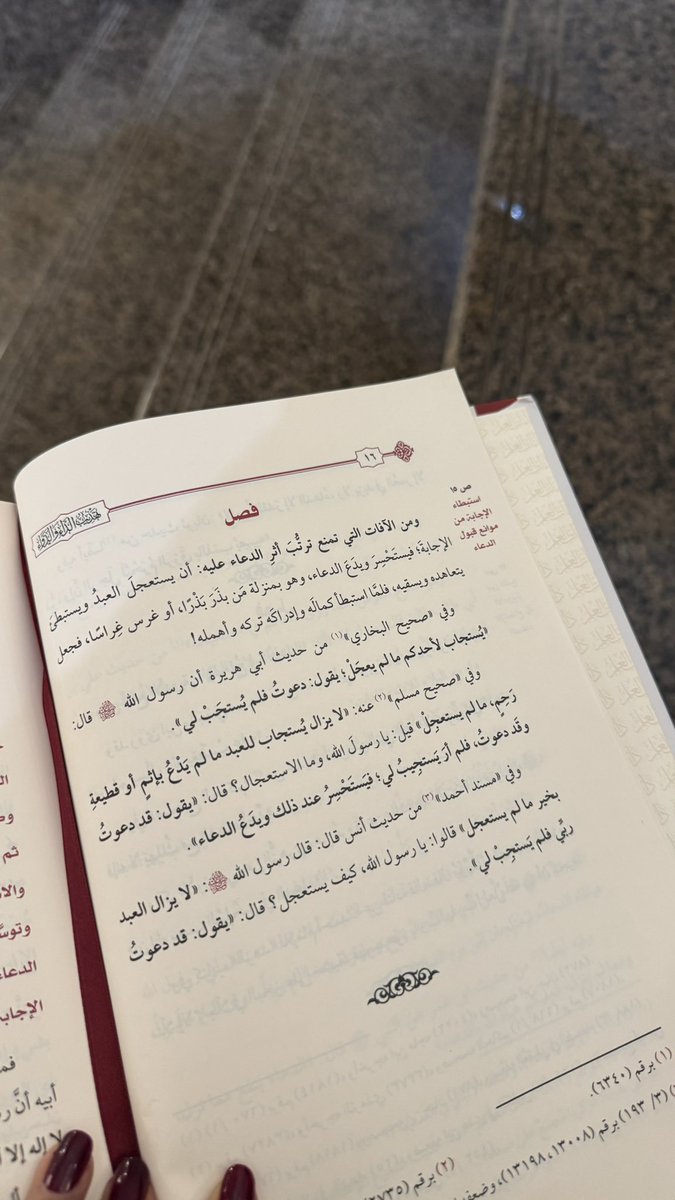 تهذيب الداء والدواء
١٦
فصل
ص ١٥
استبطاء
الإجابة من
موانع قبول
الدعاء
ومن الآفات التي تمنع ترتُّبَ أثرِ الدعاء عليه: أن يستعجلَ العبدُ ويستبطئَ
الإجابةَ؛ فيستحْسِرَ ويدَعَ الدعاء، وهو بمنزلة مَن بذَرَ بَذْرًا، أو غرس غِراسًا، فجعل
يتعاهده ويسقيه، فلمَّا استبطأ كمالَه وإدراكَه تركه وأهمله!
وفي «صحيح البخاري»(١) من حديث أبي هريرة أن رسول الله ﷺ قال:
«يُستجاب لأحدكم ما لم يعجَلْ؛ يقول: دعوتُ فلم يُستجَبْ لي».
وفي «صحيح مسلم»(٢) عنه: «لا يزال يُستجاب للعبد ما لم يَدْعُ بإثمٍ أو قطيعةِ
رَحِمٍ، ما لم يستعجِلْ» قيل: يا رسولَ الله، وما الاستعجال؟ قال: «يقول: قد دعوتُ
وقد دعوتُ، فلم أرَ يَستجِيبُ لي؛ فيَستَحْسِرُ عند ذلك ويدَعُ الدعاء».
وفي «مسند أحمد»(٣) من حديث أنس قال: قال رسول الله ﷺ: «لا يزال العبد
بخير ما لم يستعجل» قالوا: يا رسول الله، كيف يستعجل؟ قال: «يقول: قد دعوتُ
ربِّي فلم يَستجِبْ لي».
(١) برقم (٦٣٤٠).
(٢) برقم (٢٧٣٥)
(٣/ ١٩٣) برقم (١٣٠٠٨، ١٣١٩٨)، وضعفه
ثم
والا
وتوسَّ
الدعاء
الإجابة
فم
أبيه أنَّ ر
لا إله إلا أ